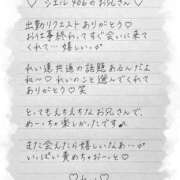 ♡ シエル406のお兄さん ♡
出勤リクエストありがとう♡
お仕事終わってすぐ会いに来て
くれて…嬉しい…♡
れい達共通の話題あるんだよ
ね〜♡れいのこと選んでくれて
ありがとう♡笑
とってもえちえちなお兄さんで、
めーっちゃ楽しかったです
また会えたら嬉しいなあ…♡
いっぱい責めちゃお〜っと♡